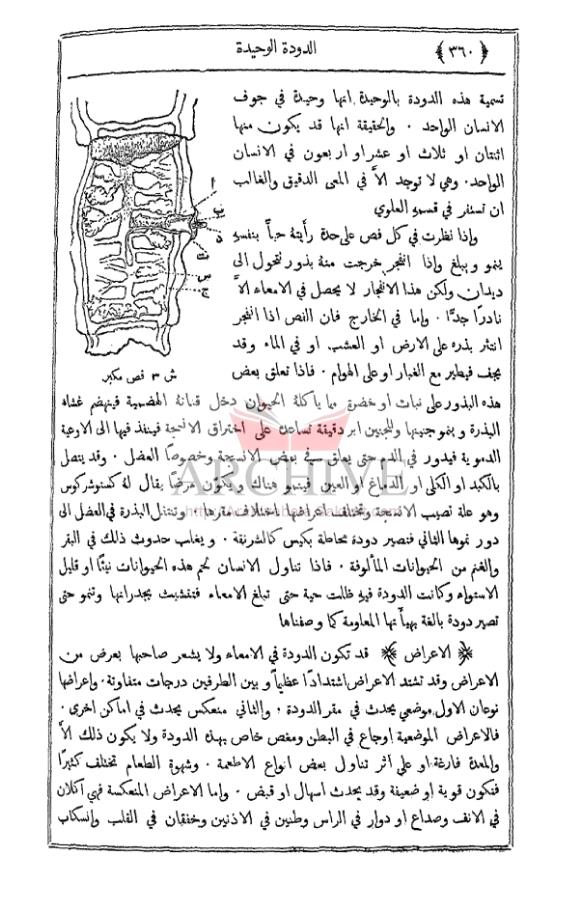 ﴿ ٣٦٠ ﴾
الدودة الوحيدة
تسمية هذه الدودة بالوحيدة انها وحيدة في جوف
الانسان الواحد ٠ والحقيقة انها قد يكون منها
اثنتان او ثلاث او عشر او اربعون في الانسان
الواحد. وهي لا توجد الاَّ في المعى الدقيق والغالب
ان تستقر في قسمهِ العلوي
واذا نظرت في كل فص على حدة رأيتهُ حباً بنفسهِ
ينمو ويبلغ واذا انفجر خرجت منهُ بذور تتحول الى
ديدان ولكن هذا الانفجار لا يحصل في الامعاء الاَّ
نادرًا جدًّا ٠ واما في الخارج فان الفص اذا انفجر
انتثر بذره على الارض او العشب او في الماء وقد
يجف فيطير مع الغبار او على الهوام ٠ فاذا تعلق بعض
ا
ب
د
ت
س
ج
ش ٣ فص مكبر
هذه البذور على نبات او خضرة مما ياكلهُ الحيوان دخل قناتهُ الهضمية فينهضم غشاء
البذرة وينمو جنينها وللجنين ابر دقيقة تساعده على اختراق الانسجة فينفذ فيها الى الاوعية
الدموية فيدور في الدم حتى يعلق في بعض الانسجة وخصوصًا العضل ٠ وقد يتصل
بالكبد او الكلى او الدماغ او العين فينمو هناك ويكوّن مرضًا يقال لهُ كستوشركوس
وهو علة تصيب الانسجة وتختلف اعراضها باختلاف مقرها ٠ وتنتقل البذرة في العضل الى
دور نموها الثاني فتصير دودة محاطة بكيس كالشرنقة ٠ ويغلب حدوث ذلك في البقر
والغنم من الحيوانات المألوفة ٠ فاذا تناول الانسان لحم هذه الحيوانات نيئًا او قليل
الاستواء وكانت الدودة فيهِ ظالت حية حتى تبلغ الامعاء فتتشبث بجدرانها وتنمو حتى
تصير دودة بالغة بهيأتها المعلومة كما وصفناها
﴿ الاعراض ﴾ قد تكون الدودة في الامعاء ولا يشعر صاحبها بعرض من
الاعراض وقد تشتد الاعراض اشتدادًا عظيماً وبين الطرفين درجات متفاوتة ٠ واعراضها
نوعان الاول موضعي يحدث في مقر الدودة ٠ والثاني منعكس يحدث في اماكن اخرى ٠
فالاعراض الموضعية اوجاع في البطن ومغص خاص بهذه الدودة ولا يكون ذلك الاَّ
والمعدة فارغة او على اثر تناول بعض انواع الاطعمة ٠ وشهوة الطعام تختلف كثيرًا
فتكون قوية او ضعيفة وقد يحدث اسهال او قبض ٠ واما الاعراض المنعكسة فهي آكلان
في الانف وصداع او دوار في الراس وطنين في الاذنين وخفقان في القلب وانسكاب
ARCHIVE